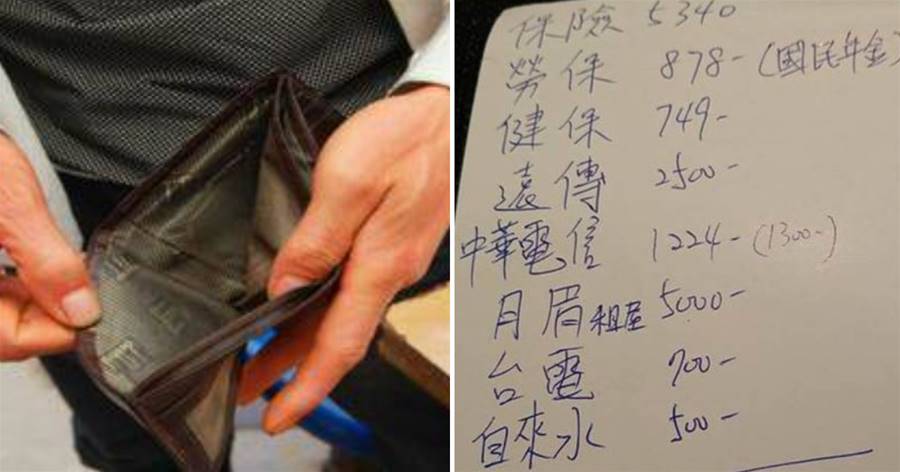 保險 5340
勞保 878- (國民年金)
健保 749-
遠傳 2500-
中華電信 1224- (1300-)
月眉租屋 5000-
台電 700-
自來水 500-